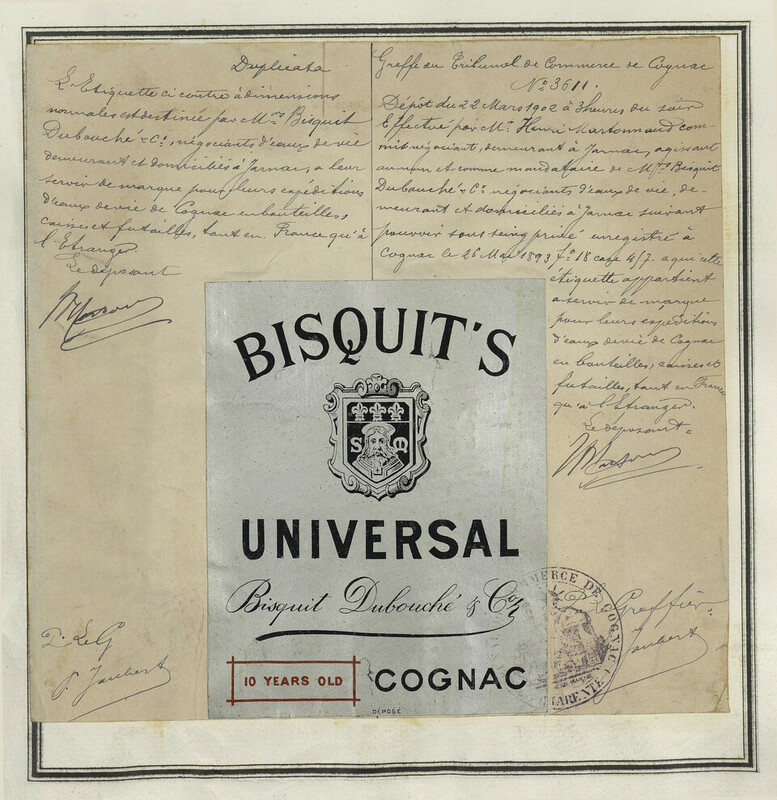 Duplicata
L'Etiquette ci contre à dimensions
normales est destinée par Mrs Bisquit
Dubouché & Co, négociants d'eaux de vie
demeurant et domiciliés à Jarnac, a leur
servir de marque pour leurs expéditions
d'eaux de vie de Cognac en bouteilles,
caisses et futailles, tant en France qu'à
l'Etranger.
Le déposant
Greffe du Tribunal de Commerce de Cognac
No 3611.
Dépôt du 22 Mars 1902 à 3 heures du soir
Effectué par Mr Henri Martonnaud com-
mis négociant, demeurant à Jarnac, agissant
au nom et comme mandataire de Mrs Bisquit
Dubouché & Co négociants d'eaux de vie, de-
meurant et domiciliés à Jarnac suivant
pouvoir sous seing privé enregistré à
Cognac le 26 Mai 1893 fo 18 case 4/7. a qui cette
étiquette appartient
a servir de marque
pour leurs expéditions
d'eaux de vie de Cognac
en bouteilles, caisses et
futailles, tant en France
qu'à l'Etranger.
Le déposant
BISQUIT'S
S Q
UNIVERSAL
Bisquit Dubouché & Co
10 YEARS OLD
COGNAC
DÉPOSÉ
P. Le G
P. Jaubert
Le Greffier
Jaubert
COMMERCE DE COGNAC
CHARENTE